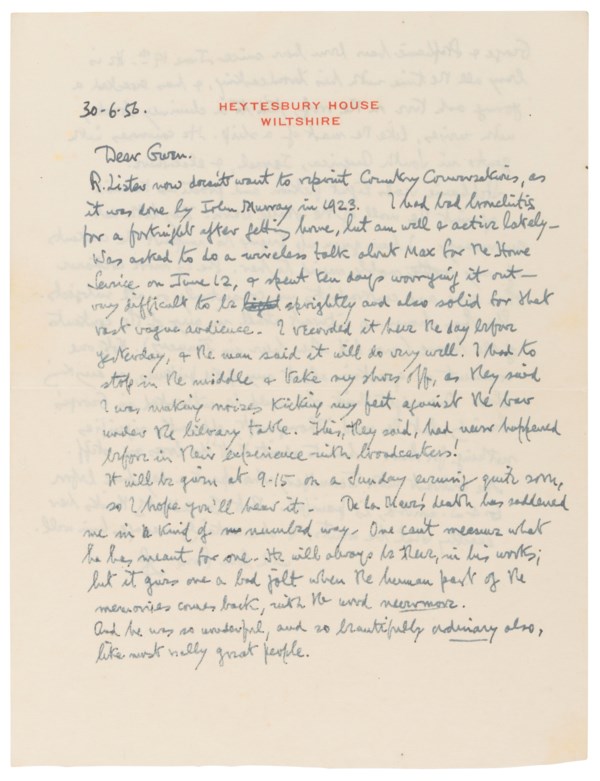 30-6-56.
HEYTESBURY HOUSE
WILTSHIRE
Dear Gwen.
R. Lister now doesn't want to reprint Country Conversations, as
it was done by John Murray in 1923. I had bad bronchitis
for a fortnight after getting home, but am well & active lately —
Was asked to do a wireless talk about Max for the Home
Service on June 12, & spent ten days worrying it out —
very difficult to be light sprightly and also solid for that
vast vague audience. I recorded it here the day before
yesterday, & the man said it will do very well. I had to
stop in the middle & take my shoes off, as they said
I was making noises kicking my feet against the bar
under the library table. This, they said, had never happened
before in their experience with broadcasters!
It will be given at 9-15 on a Sunday evening quite soon,
so I hope you'll hear it. De la Mare's death has saddened
me in a kind of numbed way. One can't measure what
he has meant for one. He will always be there, in his works;
but it gives one a bad jolt when the human part of the
memories comes back, with the word nevermore.
And he was so wonderful, and so beautifully ordinary also,
like most really great people.